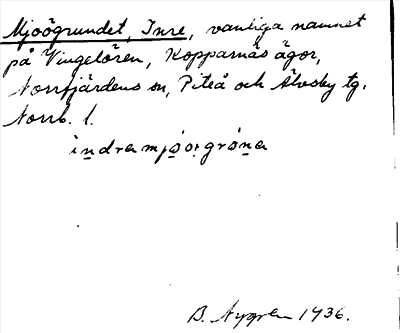 Mjoögrundet, Inre, vanliga namnet
på Vingelören, Kopparnäs ägor,
Norrfjärdens sn, Piteå och Älvsby tg.
Norrb. l.
indra mjo̱o̱r gro̱na
B. Nygren 1936.